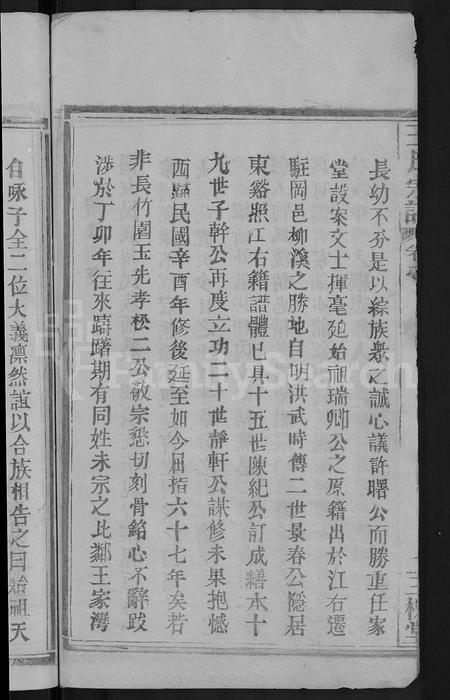 長幼不分是以綜族衆之誠心議許曙公而勝重任家
堂設案文士揮毫延始祖瑞卿公之原籍出於江右遷
駐岡邑柳溪之勝地自明洪武時傳二世景春公隱居
東谿照江右籍譜體已具十五世陳紀公訂成繕本十
九世子幹公再度立功二十世靜軒公謀修未果抱憾
西歸民國辛酉年修後延至如今屈指六十七年矣若
非長竹園玉先孝松二公敬宗懇切刻骨銘心不辭跋
涉於丁卯年往來躊躇期有同姓未宗之比鄰王家灣
自咏子全二位大義凛然誼以合族相告之曰始祖天
王氏宗譜
三槐堂
FamilySearch